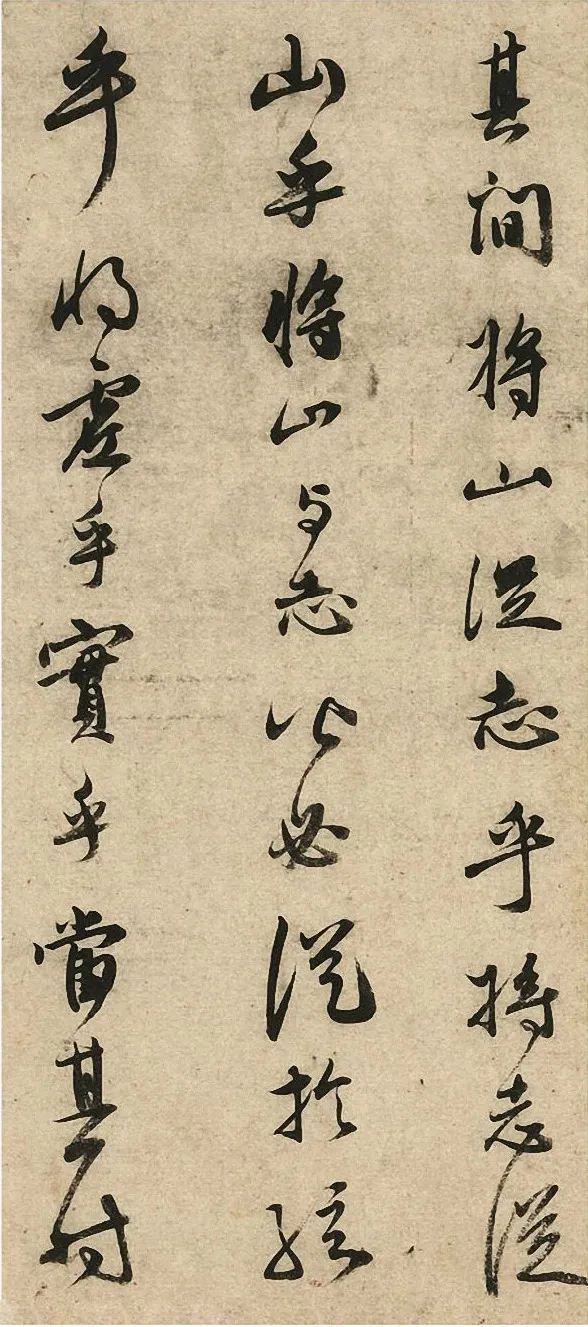 其間將山從志乎將志從
山乎將山与志必從於絃
乎將虛乎實乎當其時